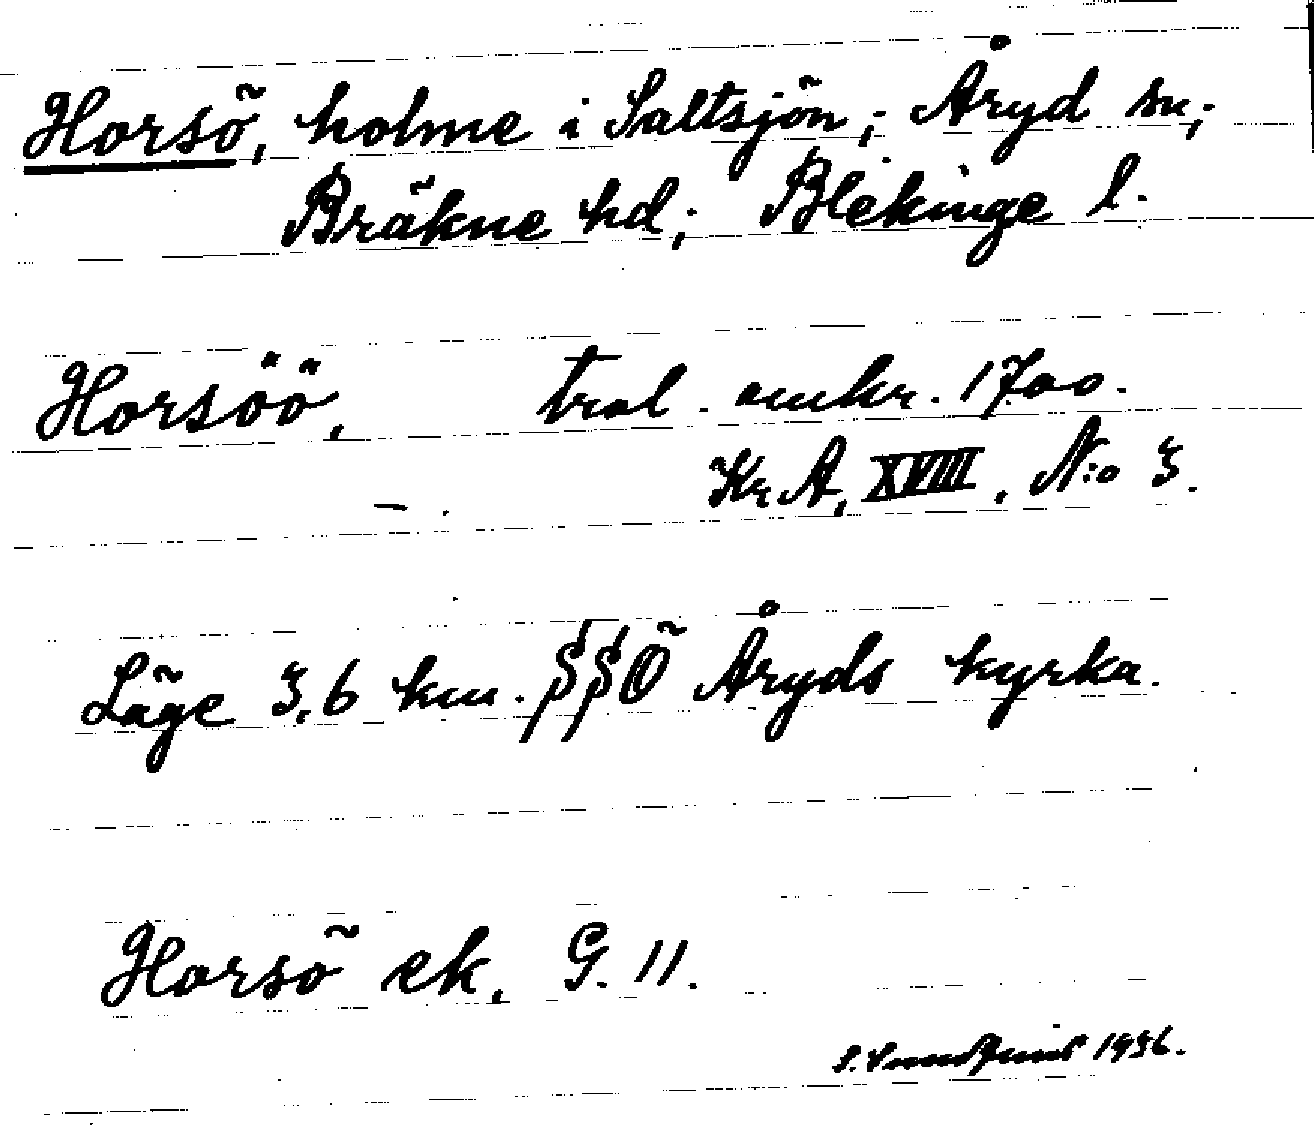 Horsö, holme i Saltsjön; Åryd sn;
Bräkne hd; Blekinge l.
Horsöö, trol. omkr. 1700.
Kr A, XVIII, N:o 3.
Läge 3,6 km. SSÖ Åryds kyrka.
Horsö ek, G. 11.
S. 1936.